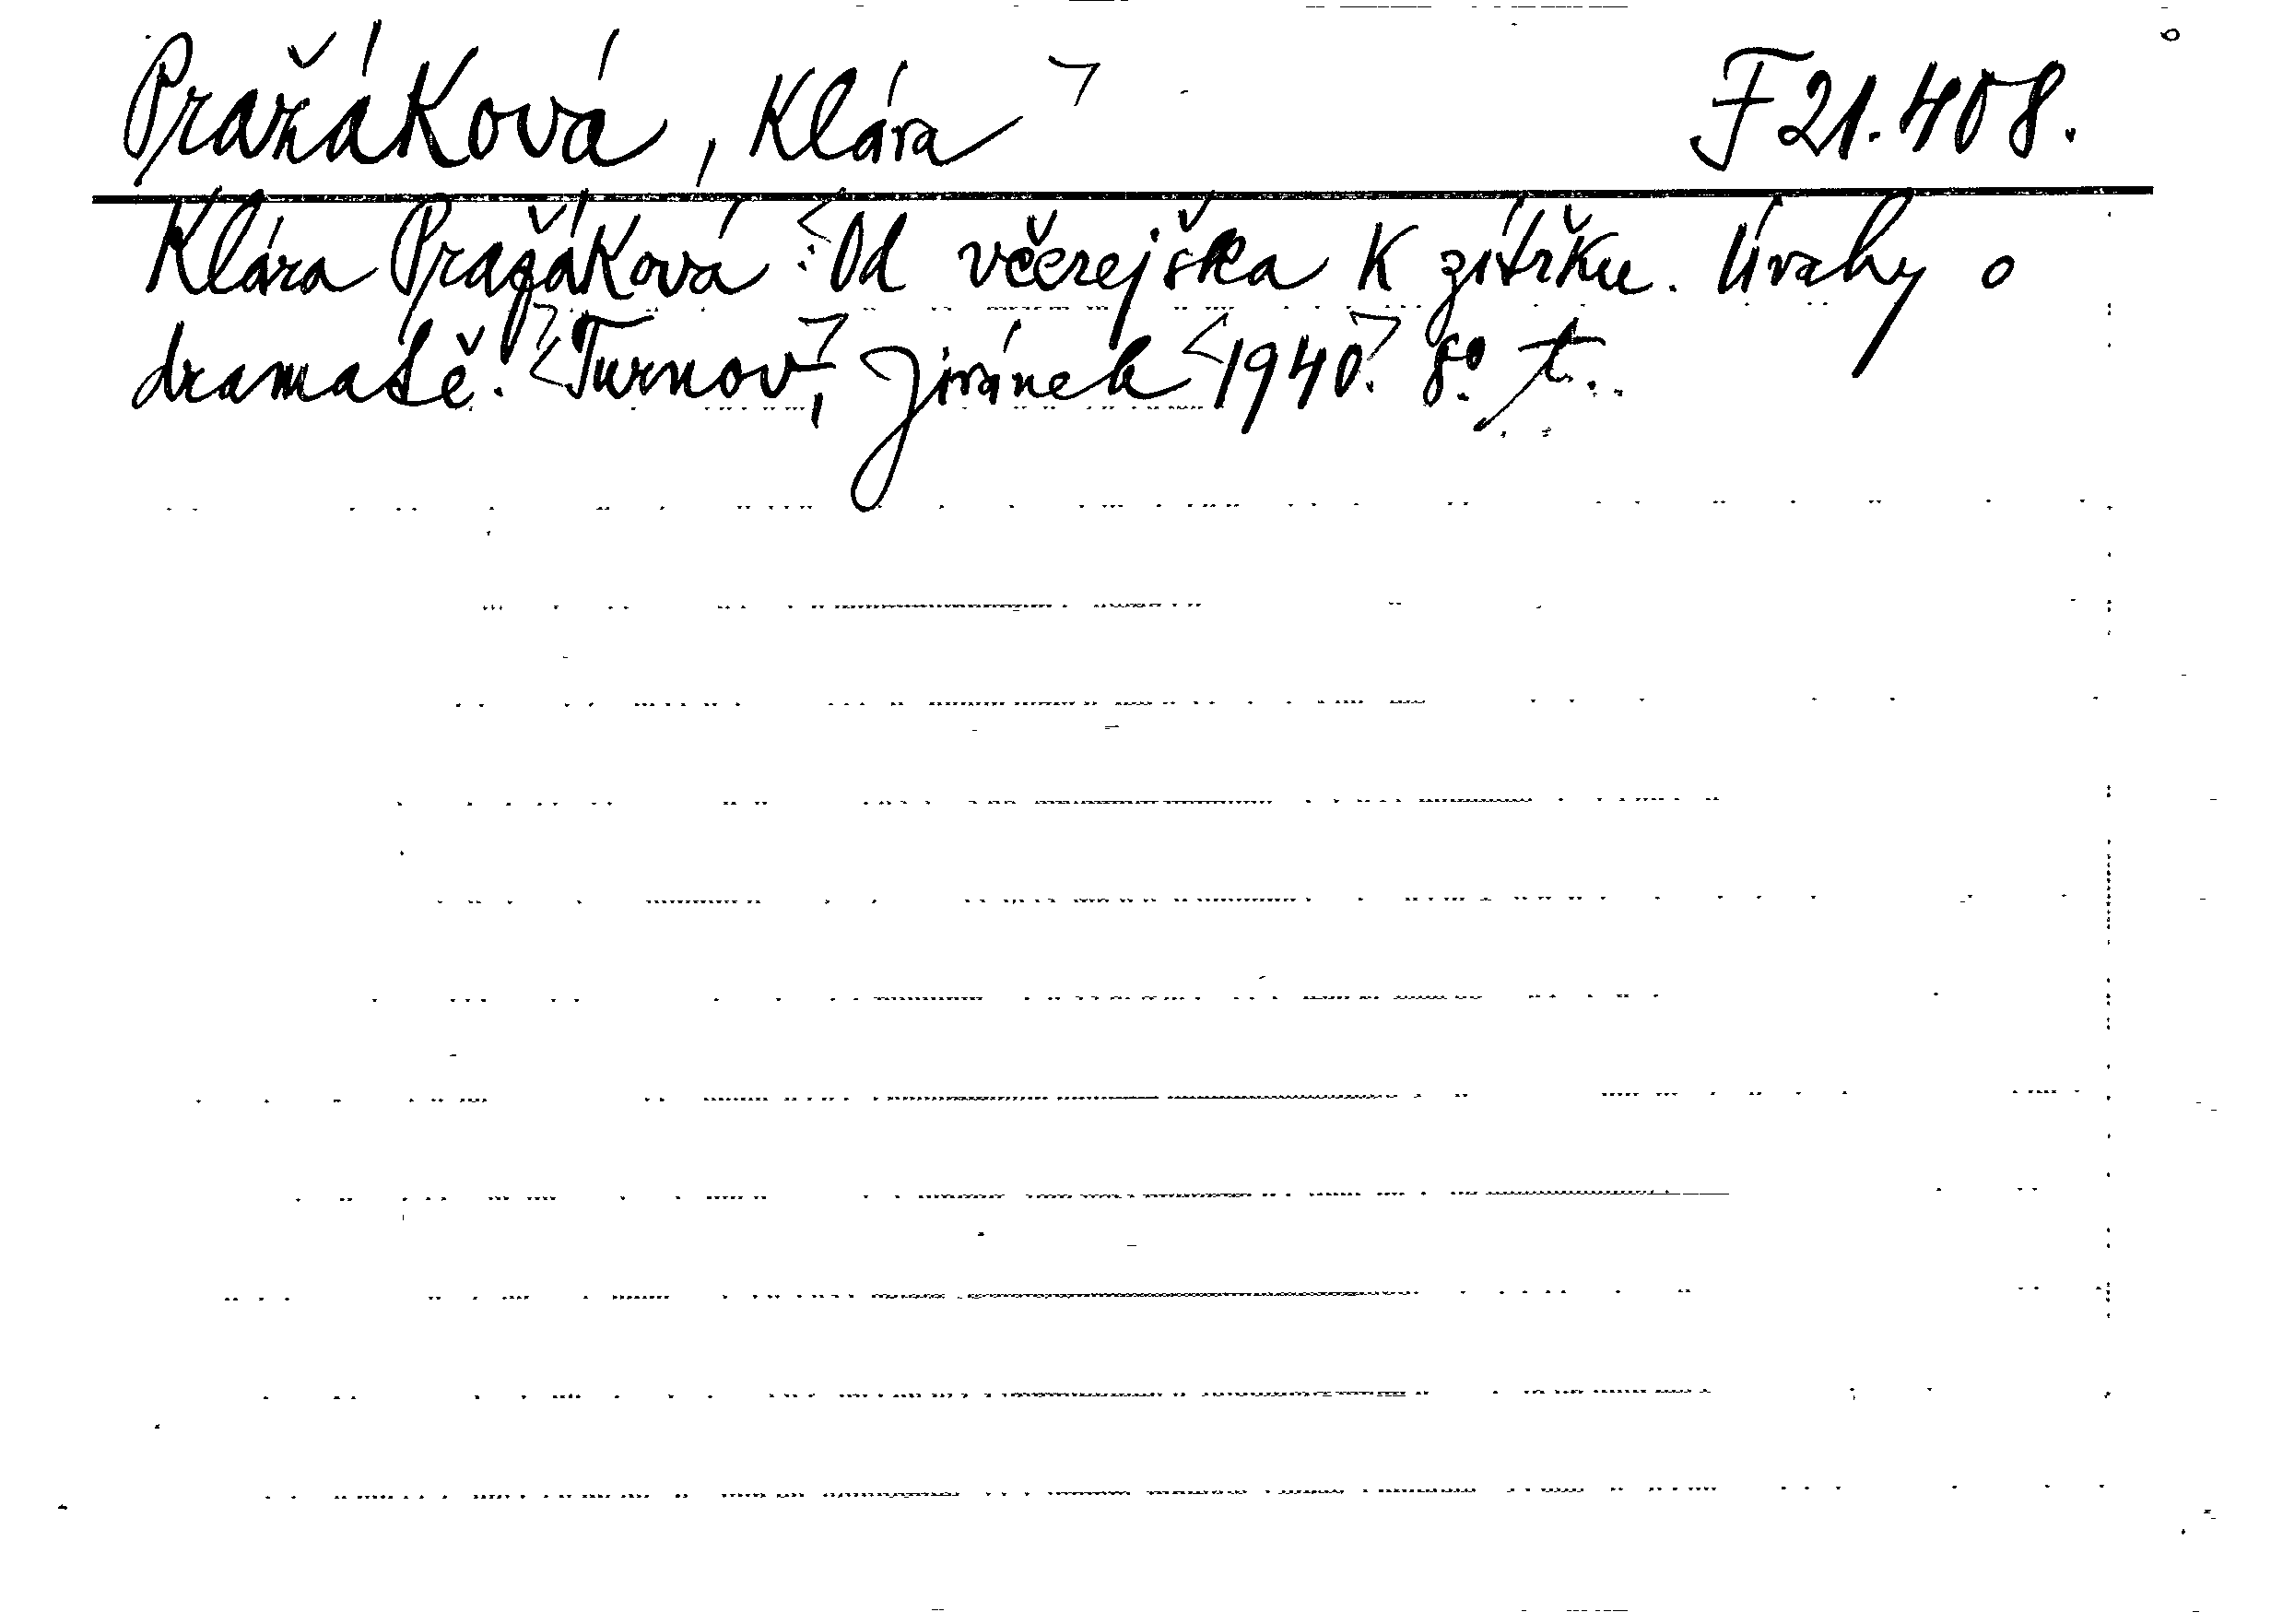 Pražáková, Klára F 21.408.
Klára Pražáková: Od včerejška k zítřku. Úvahy o
dramatě. Turnov, Jiránek 1940. 8° t.